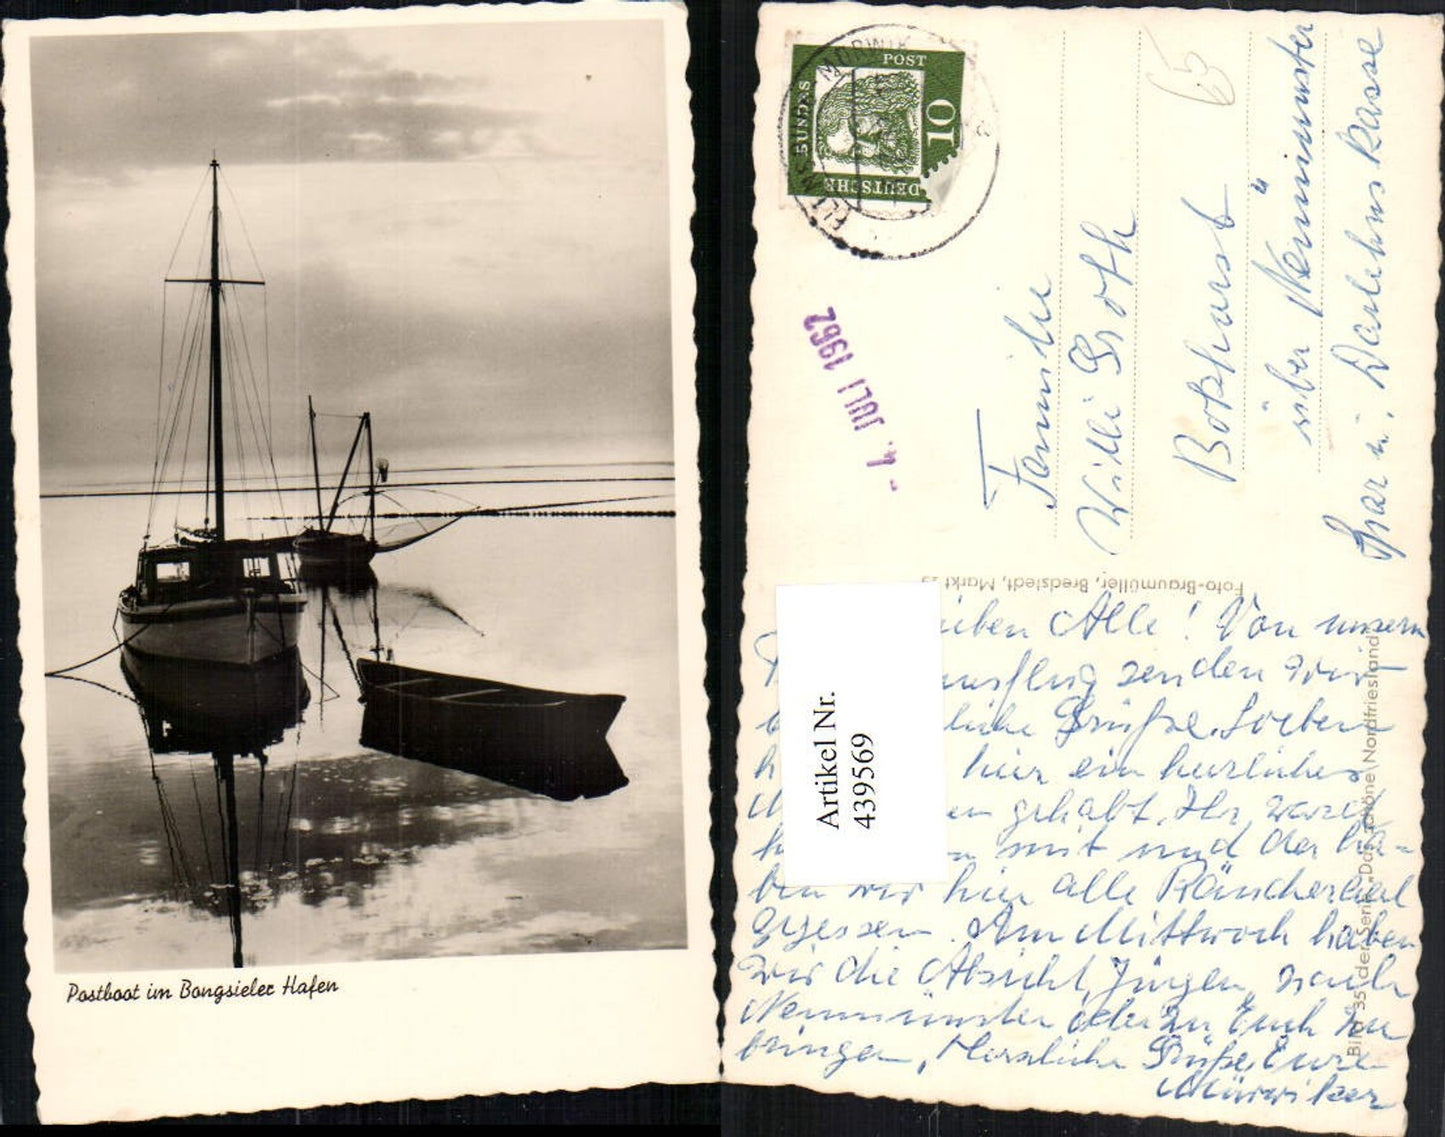 Postboot im Bongsieler Hafen
DEUTSCHE
BUNDES
POST
10
- 4. JULI 1962
65
Familie
Willi Groth
Bokhorst
über Neumünster
Spar u. Darlehnskasse
Foto-Braumüller, Bredstedt, Markt
Bild 35 der Serie „Das schöne Nordfriesland"
Artikel Nr.
439569
Alle! Von unserm
ausflug senden wir
liche Grüße. Soeben
hier ein herrliches
gehabt. Ihr waret
mit und da ha-
ben wir hier alle Räucheraal
gegessen. Am Mittwoch haben
wir die Absicht, Jürgen nach
Neumünster oder zu Euch zu
bringen. Herzliche Grüße Eure
Mürwiker